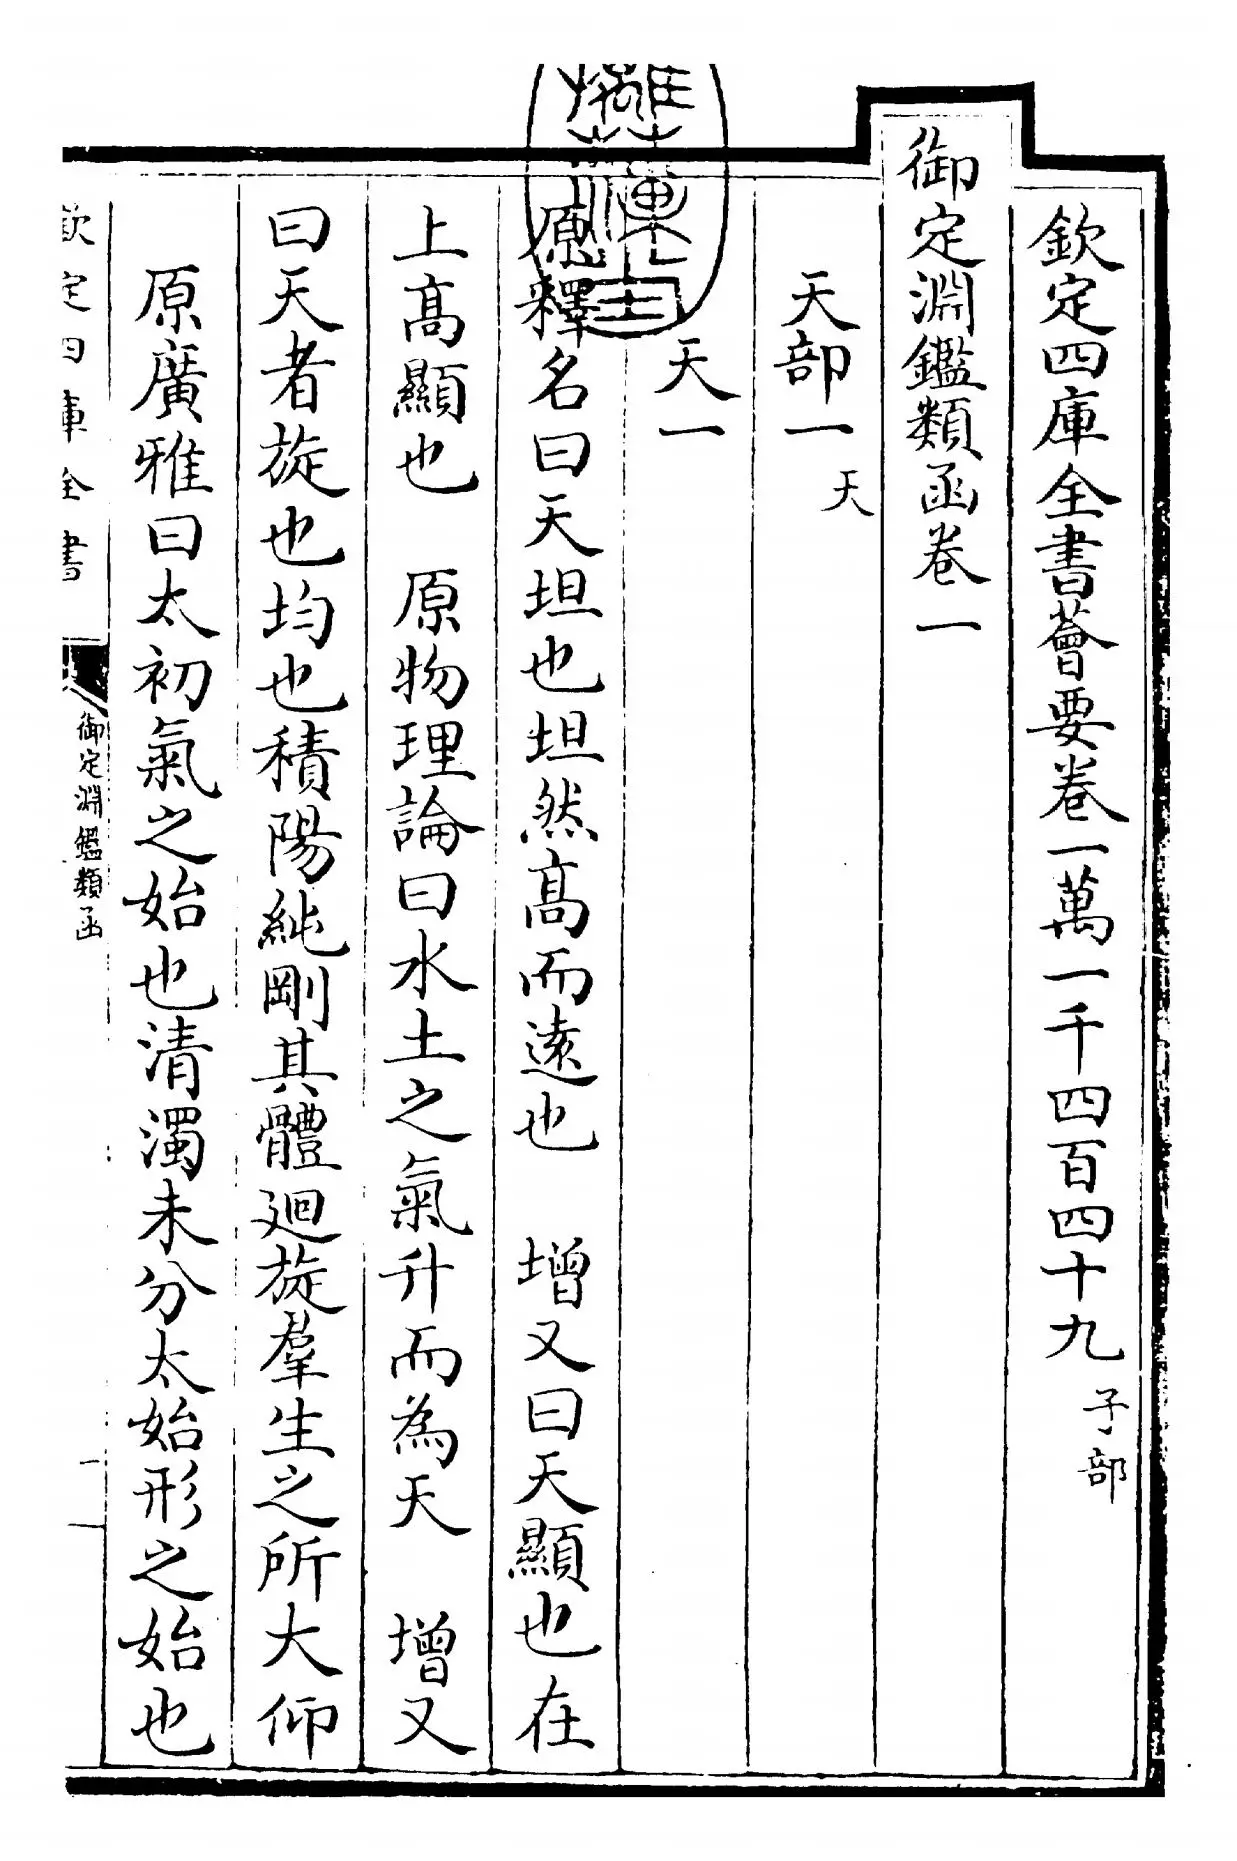 欽定四庫全書薈要卷一萬一千四百四十九 子部
御定淵鑑類函卷一
天部一 天
天一
原釋名曰天坦也坦然高而遠也 增又曰天顯也在
上高顯也 原物理論曰水土之氣升而為天 增又
曰天者旋也均也積陽純剛其體廻旋羣生之所大仰
原廣雅曰太初氣之始也清濁未分太始形之始也
欽定四庫全書
御定淵鑑類函
一